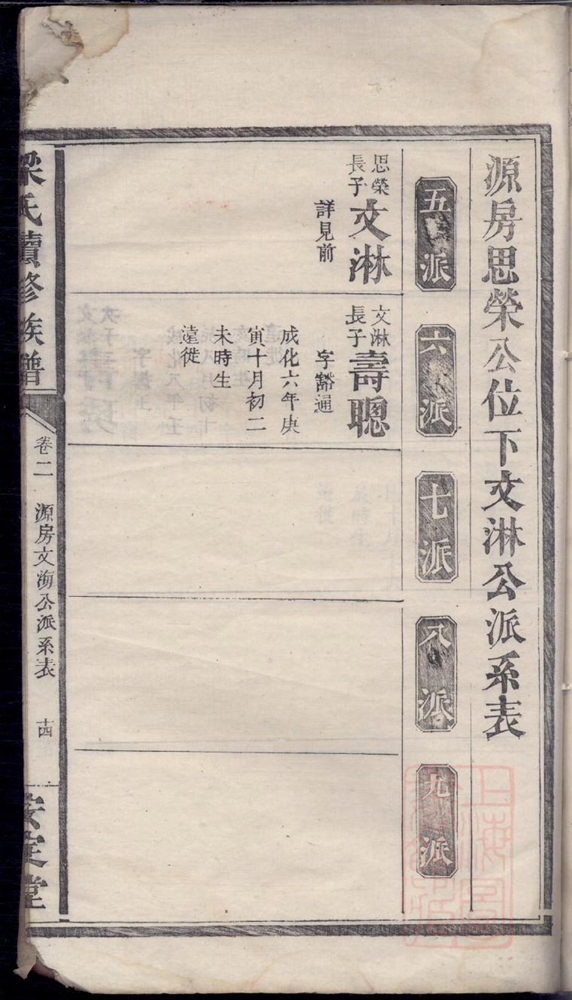 源房思榮公位下文淋公派系表
五派
思榮
長子
文淋
詳見前
六派
文淋
長子
壽聰
字豁通
成化六年庚
寅十月初二
未時生
遠徙
七派
八派
九派
梁氏續修族譜
卷二
源房文海公派系表
十四
安定堂